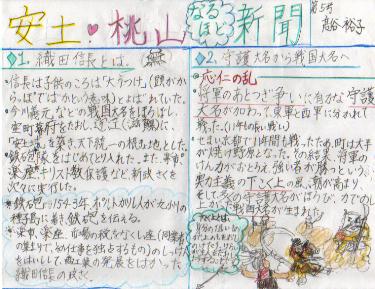 安土・桃山なるほど新聞
第5号
◇1. 織田信長とは。
・信長は子供のころは"大うつけ"(頭がから
っぽではかという意味)とよばれていた。
今川義元などの戦国大名をほろぼし、
室町幕府をたおし、近江(滋賀県)に
「安土城」を築き、天下統一の根きょ地とした。
鉄ぽう隊をはじめてとり入れた。また、楽市・
楽座・キリスト教保護など、新政さくを
次々に実行した。
鉄ぽう…1543年、ポルトガル人が九州の
種子島に着き、鉄砲を伝える。
楽市、楽座…市場の税をなくし座(同業者
の集まりで、
をはいしして、商工業の発展をはかった
織田信長の政さく。
◇2. 守護大名から戦国大名へ
応仁の乱
将軍のあとつぎ争いに有力な守護
大名がかわって、東軍と西軍に分かれて
戦った。(11年もの長い戦い)
・せまい京都で11年間も戦ったため、町は大半
が焼け野原となった。その結果、将軍の
けんカがおとろえ、強い者が勝つという、
実力主義の下こく上の風潮が高まり、
そして多くの守護大名がほろび、力でのし
上がった戦国大名が生まれた。
下こく上とは、